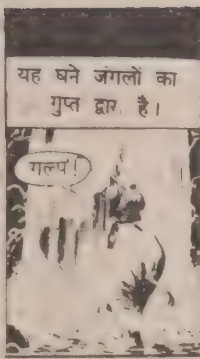 यह घने जंगलों का
गुप्त द्वार है।
गल्प!